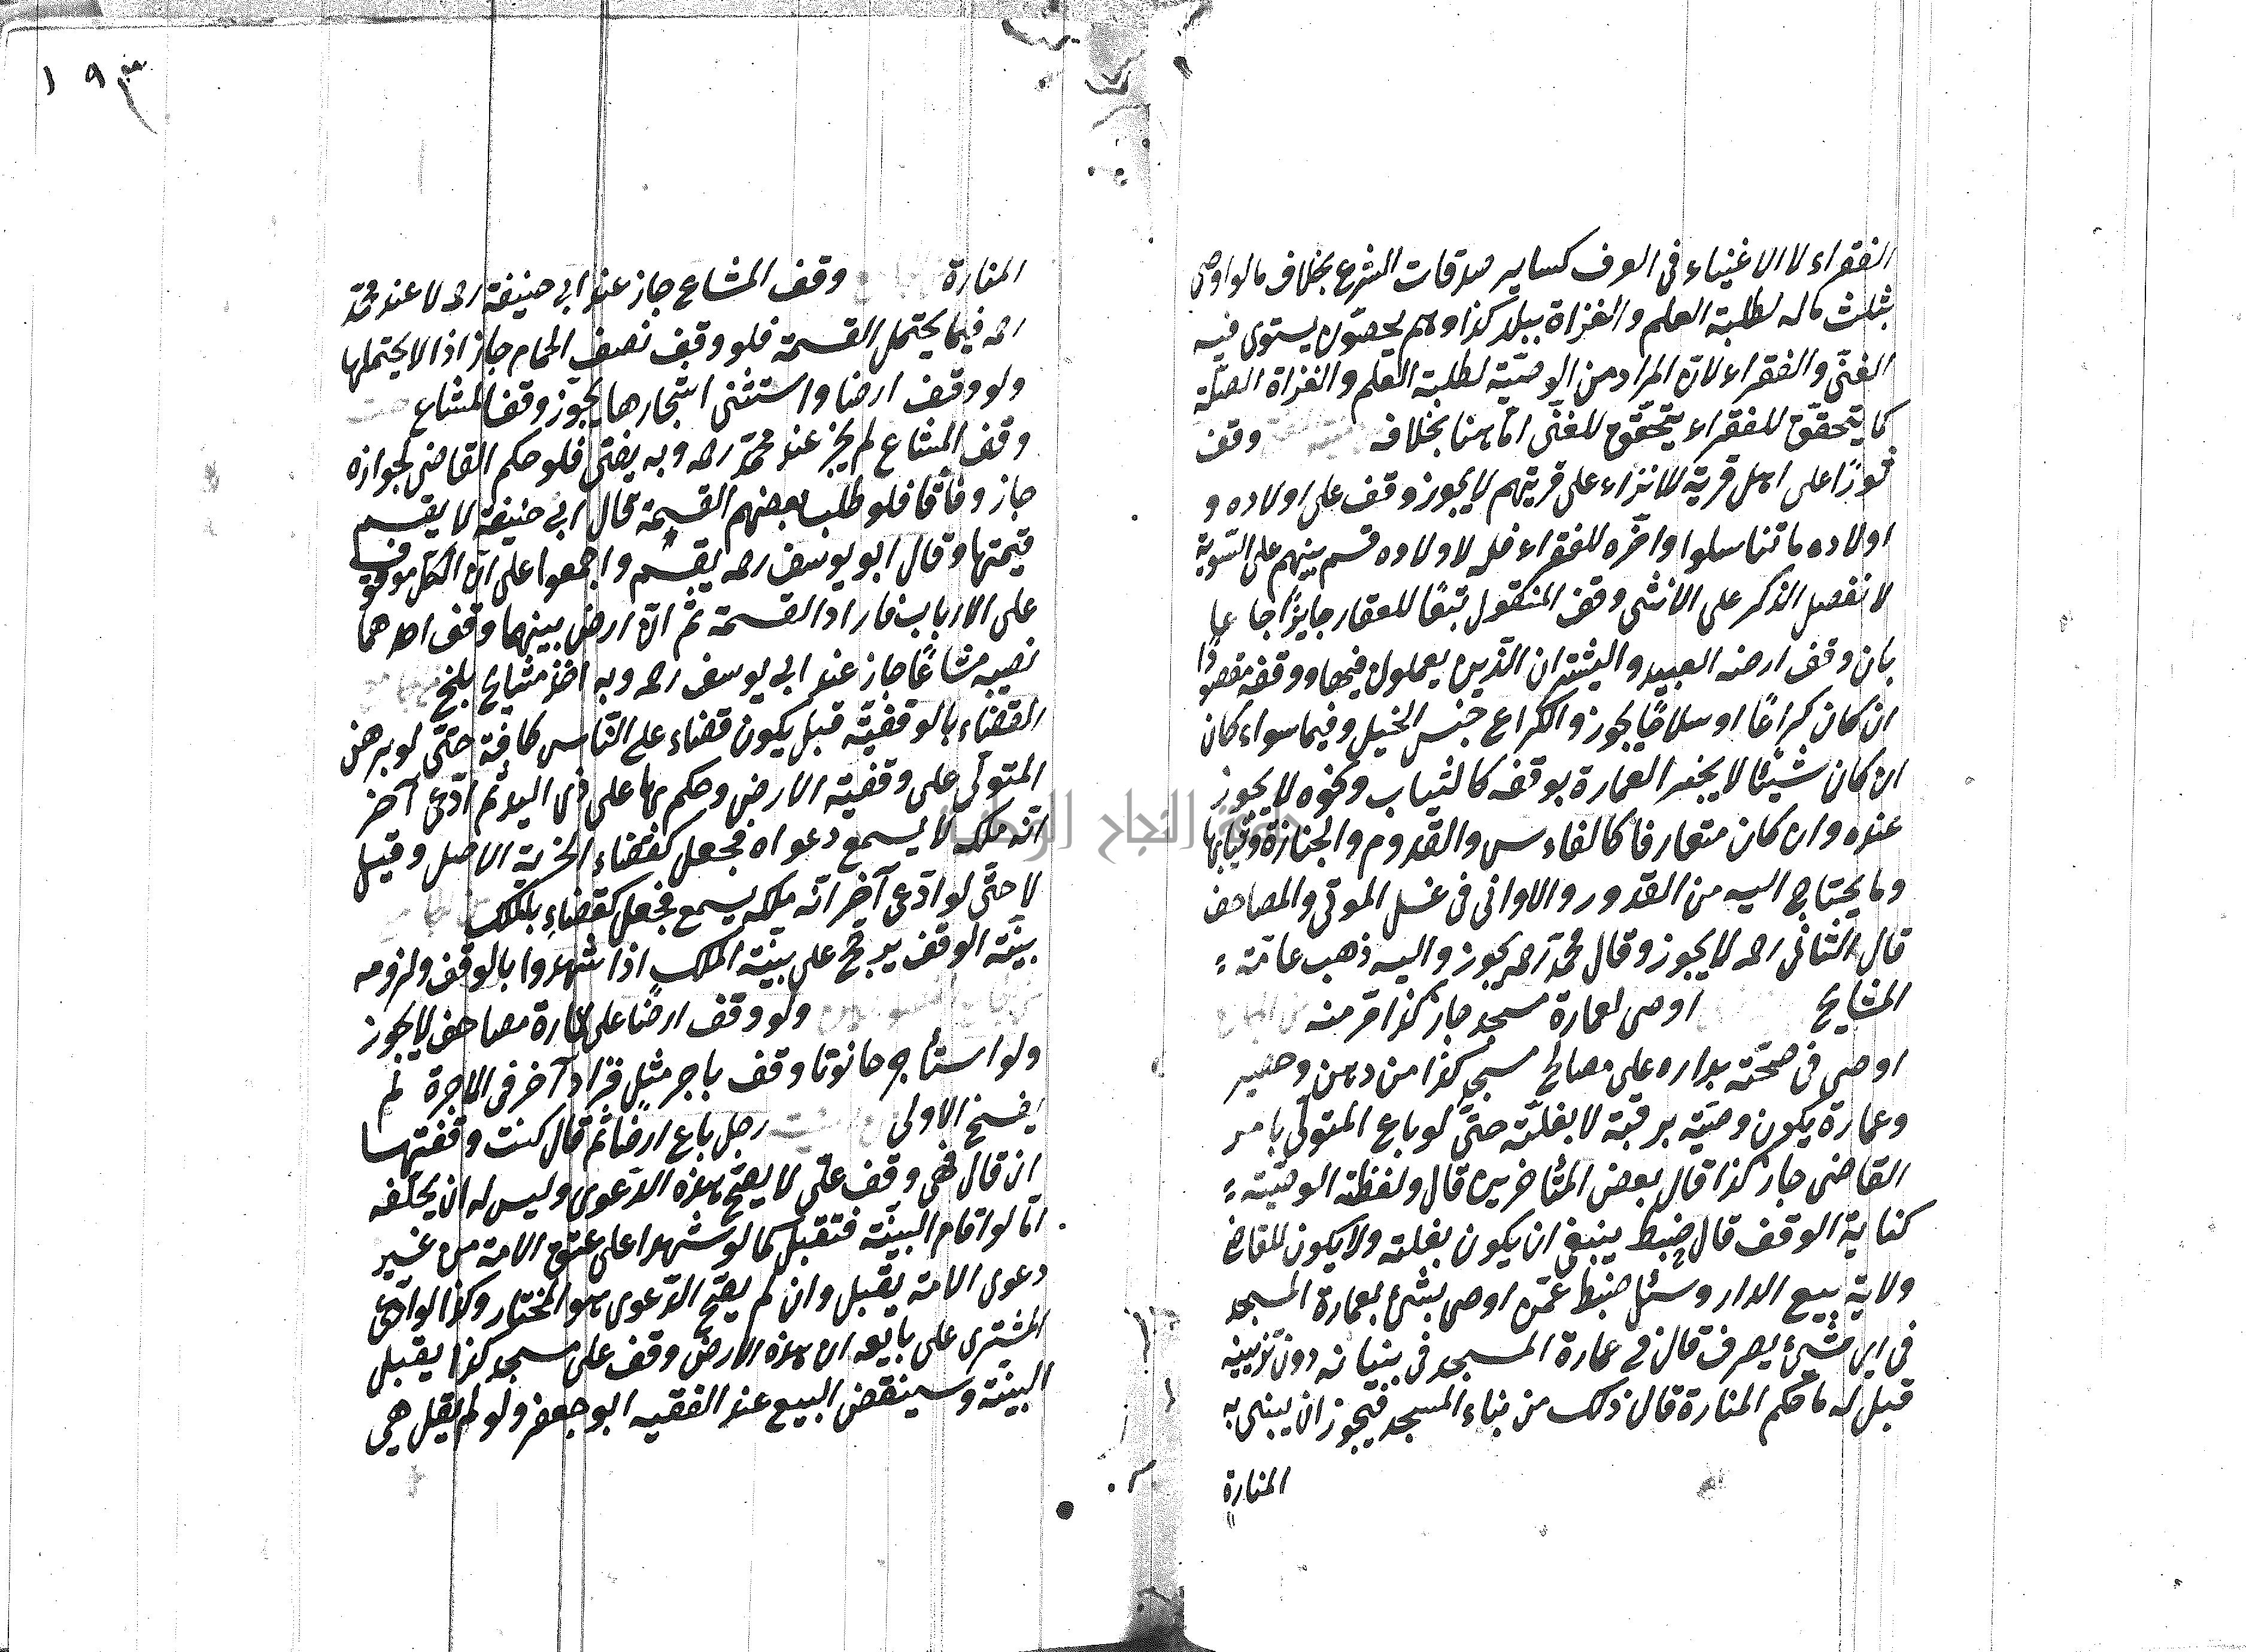 ١٩٣
الفقراء لا الاغنياء فى العرف كساير صدقات الشرع بخلاف ما لو اوصى
بثلث ماله لطلبة العلم والغزاة ببلد كذا وهم يحصون يستوى فيه
الغنى والفقراء لان المراد من الوصية لطلبة العلم والغزاة الصلة
كما يتحقق للفقراء يتحقق للغنى اما هنا بخلافه وقف
على اهل قرية على قريتهم لا يجوز وقف على اولاده و
اولاده ما تناسلوا وآخره للفقراء فله لاولاده قسم بينهم على السوية
لا نفصل الذكر على الانثى وقف المنقول تبعًا للعقار جايزًا
بان وقف ارضه العبيد والذين يعملون فيها ووقفه مقصودًا
ان كان كراعًا او سلاحًا يجوز والكراع جنس الخيل وفيما سواء كان
ان كان شيئًا لا يجر العمارة بوقفه كالثياب ونحوه لا يجوز
عنده وان كان متعارفا كالفاءس والقدوم والجنازة وثيابها
وما يحتاج اليه من القدور والاوانى فى غسل الموتى والمصاحف
قال الثانى رحمه لا يجوز وقال محمد رحمه يجوز واليه ذهب عامة
المشايخ اوصى لعمارة مسجد جاز كذا مر منه
اوصى فى صحته بداره على مصالح مسجد كذا من دهن وحصير
وعمارة يكون وصية برقبة لا بغلته حتى لو باع المتولى بامر
القاضى جاز كذا قال بعض المتاخرين قال ولفظة الوصية
كناية الوقف قال ضبط ينبغى ان يكون بغلته ولا يكون للقاضى
ولاية بيع الدار وسئل ضبط عمن اوصى بشئ لعمارة المسجد
فى اى شئ يصرف قال فى عمارة المسجد فى بنيانه دون تزيينه
قيل له ما حكم المنارة قال ذلك من بناء المسجد فيجوز ان يبنى به
المنارة
المنارة وقف المشاع جاز عند ابى حنيفة رحمه لا عند محمد
رحمه فيما يحتمل القسمة فلو وقف نصف الحمام جاز اذا لا يحتملها
ولو وقف ارضا واستثنى اشجارها يجوز وقف المشاع
وقف المشاع لم يجز عند محمد رحمه وبه يفتى فلو حكم القاضى بجوازه
جاز وفاقا فلو طلب بعضهم القسمة قال ابى حنيفة لا يقسم
قيمتها وقال ابو يوسف رحمه يقسم واجمعوا على ان الكل موقوف
على الارباب فاراد القسمة ثم ان ارض بينهما وقف احدهما
نصيبه مشاعًا جاز عند ابى يوسف رحمه وبه اخذ مشايخ بلخ
القضاء بالوقفية قبل يكون قضاء على الناس كافة حتى لو برهن
المتولى على وقفية الارض وحكم بها على ذى اليد ثم ادعى آخر
انه ملكه لا يسمع دعواه فجعل كقضاء الحرية الاصل وقيل
لا حتى لو ادعى آخر انه ملكه يسمع فجعل كقضاءٍ بالملك
بينة الوقف يرجح على بينة الملك اذا شهدوا بالوقف ولزومه
ولو وقف ارضًا على مصاحف لا يجوز
ولو استأجر حانوتا وقف باجر مثلٍ فزاد آخر فى الاجرة لم
يفسخ الاولى رجل باع ارضًا ثم قال كنت وقفتها
ان قال هى وقف على لا يصح هذه الدعوى وليس له ان يحلفه
اما لو اقام البينة فتقبل كما لو شهدا على عتق الامة من غير
دعوى الامة يقبل وان لم يصح الدعوى هو المختار وكذا لو ادعى
المشترى على بايعه ان هذه الارض وقف على مسجد كذا يقبل
البينة وسينقض البيع عند الفقيه ابو جعفر ولو لم يقل هى